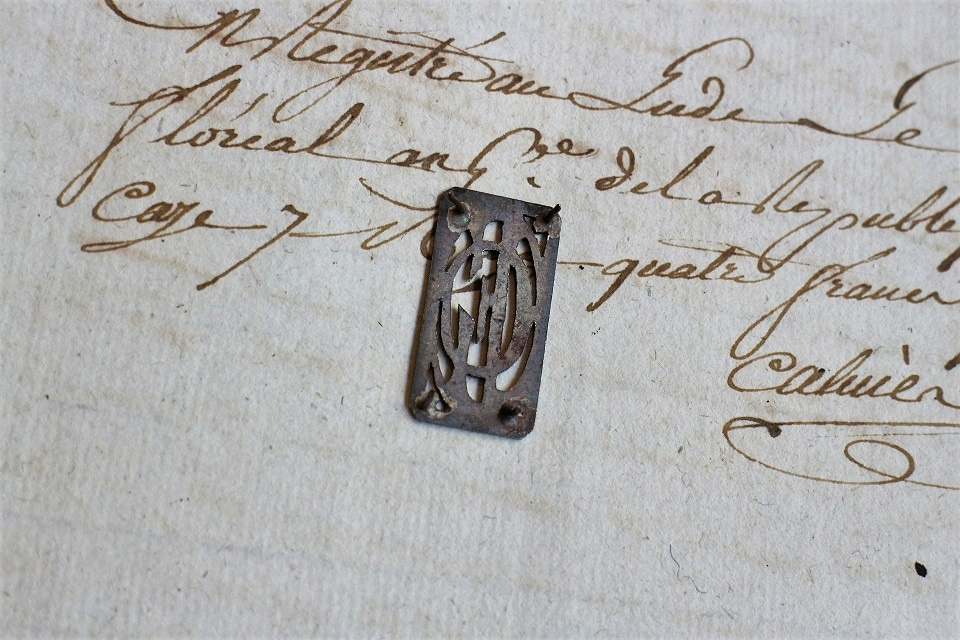 Registré au Lude Le
floréal an 6.me de la Republi
Case 7 quatre francs
Cahier